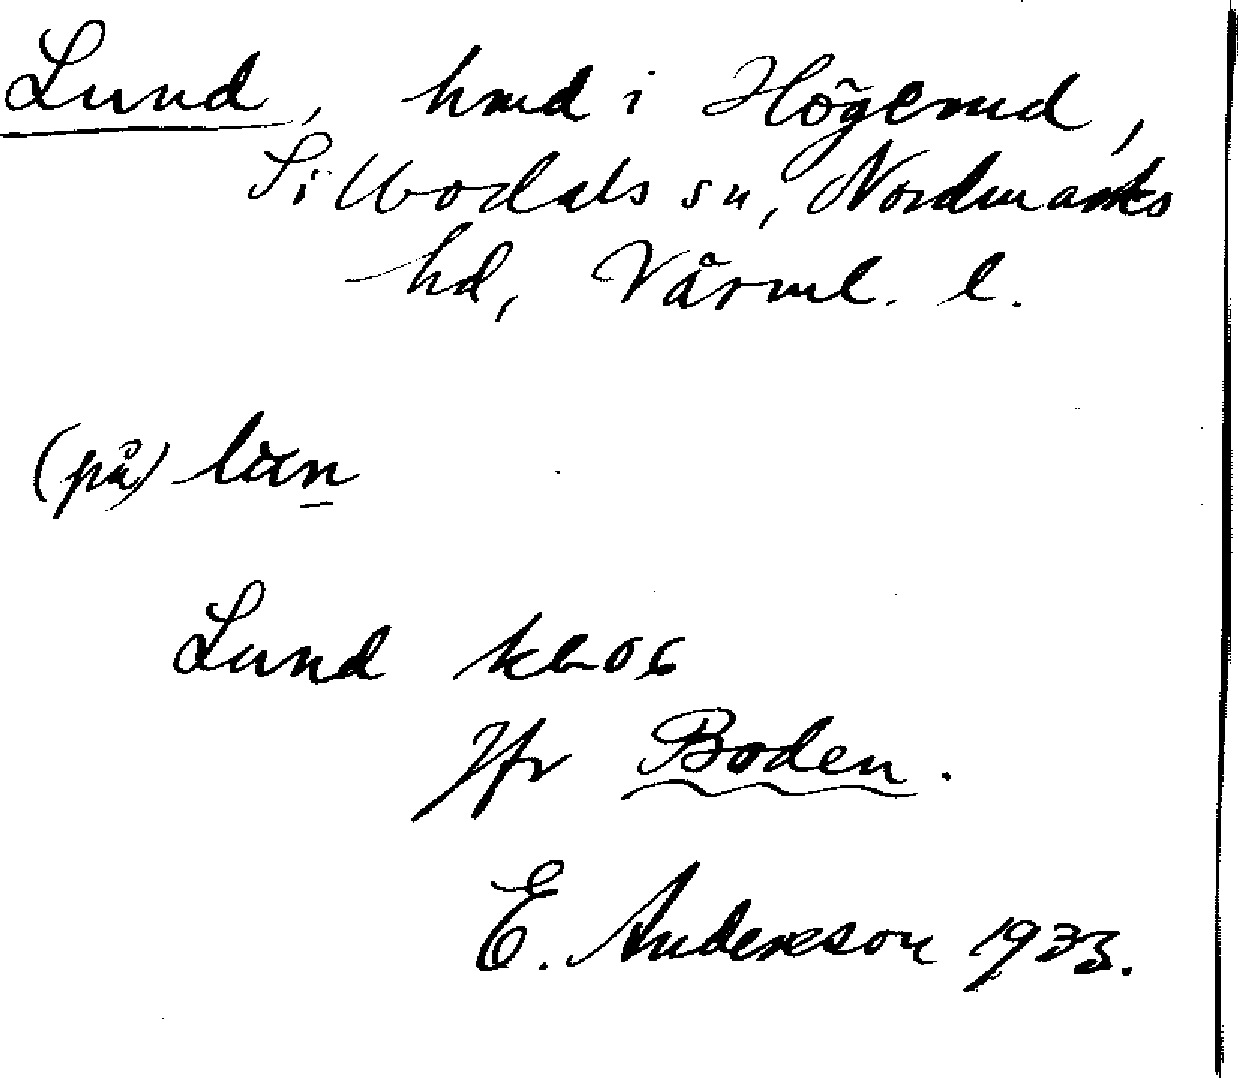 Lund, hmd i Högerud,
Silbodals sn, Nordmarks
hd, Värml. l.
(på) lùn
Lund kb 06
Jfr Boden.
E. Andersson 1933.